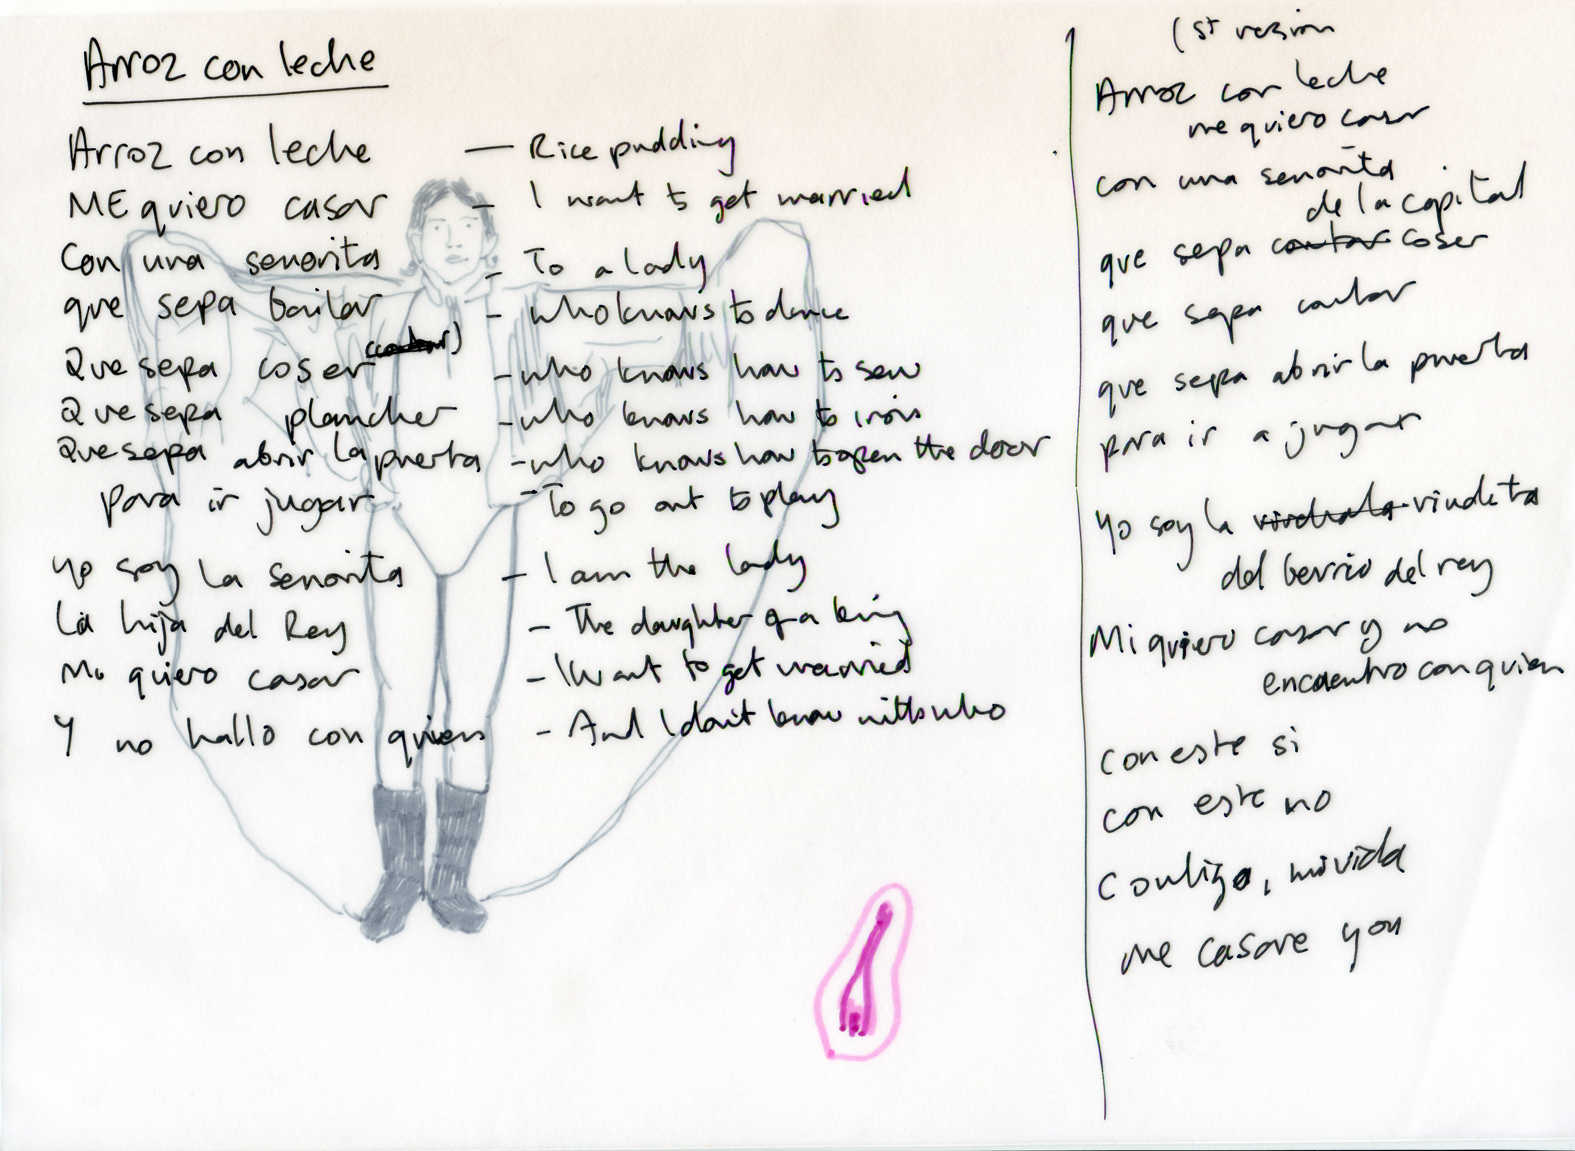 Arroz con leche
Arroz con leche — Rice pudding
ME quiero casar - I want to get married
Con una senorita - To a lady
que sepa bailar - who knows to dance
Que sepa coser - who knows how to sew
Que sepa plancher - who knows how to iron
Que sepa abrir la puerta - who knows how to open the door
para ir jugar - To go out to play
yo soy la senorita - I am the lady
La hija del Rey - The daughter of a king
Mi quiero casar - I want to get married
Y no hallo con quien - And I don't know with who
1st version
Arroz con leche
me quiero casar
con una senorita
de la capital
que sepa coser
que sepa cantar
que sepa abrir la puerta
para ir a jugar
Yo soy la viudeta
del berrio del rey
Mi quiero casar y no
encuentro con quien
con este si
con este no
contigo, mi vida
me casare yon